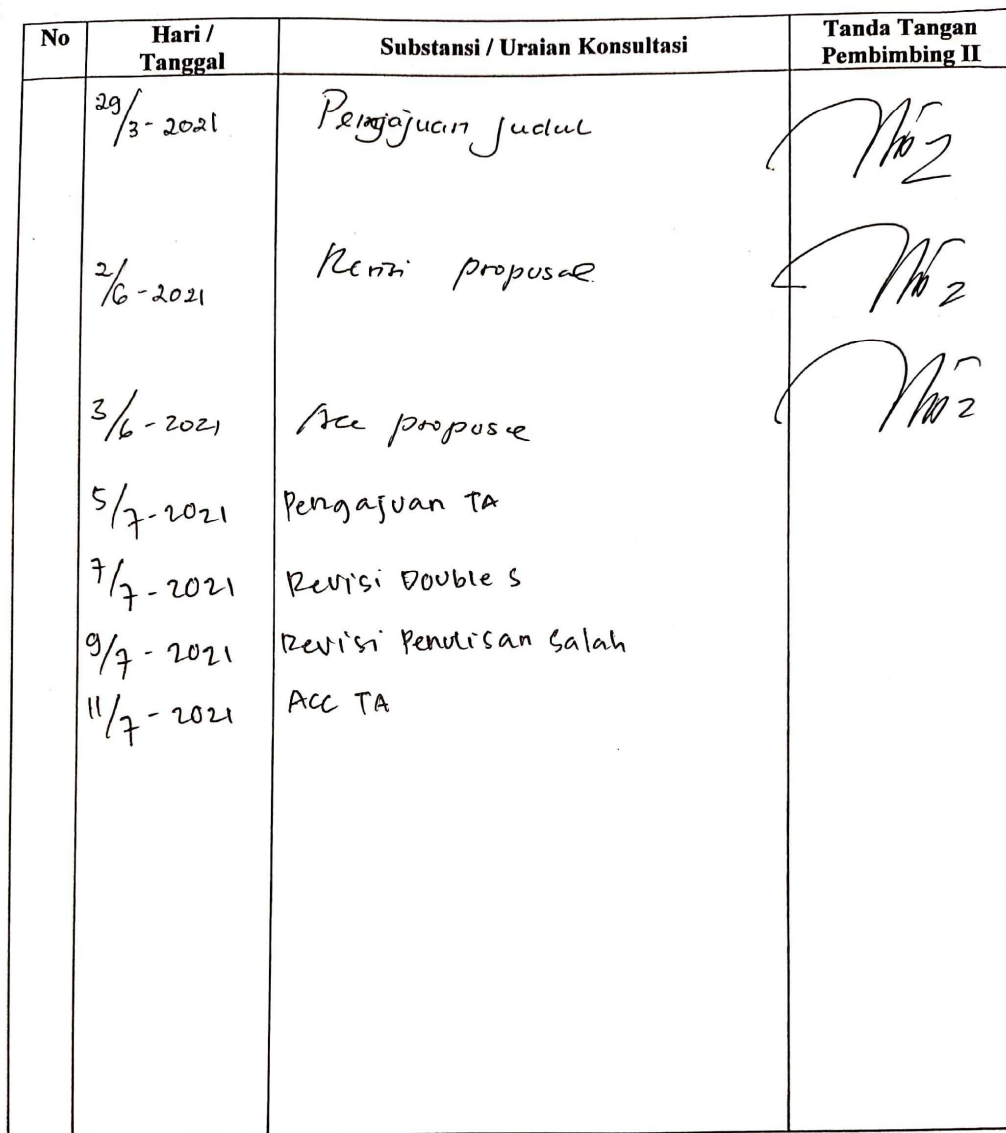 No
Hari /
Tanggal
Substansi / Uraian Konsultasi
Tanda Tangan
Pembimbing II
29/3-2021 Pengajuan judul
2/6-2021 Revisi proposal
3/6-2021 Acc proposal
5/7-2021 Pengajuan TA
7/7-2021 Revisi Double S
9/7-2021 Revisi Penulisan Salah
11/7-2021 ACC TA